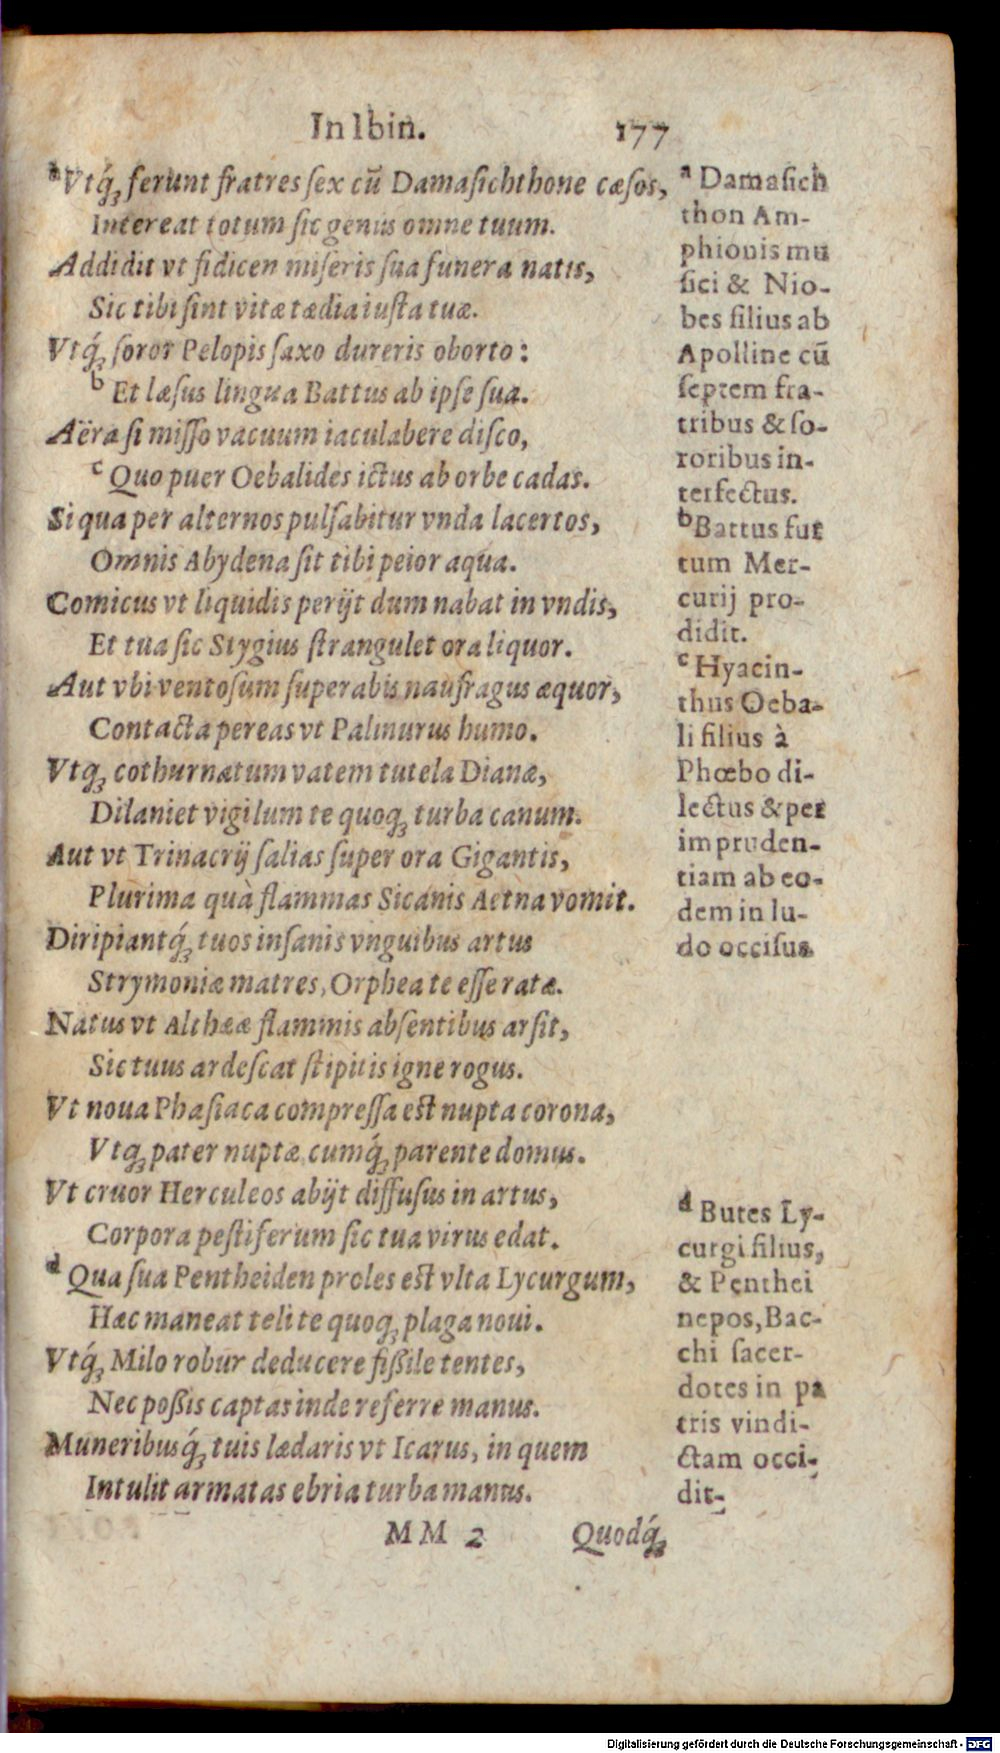 In Ibin. 177
ᵃVtq́ꝫ ferunt fratres ſex cū Damaſichthone cæſos,
Intereat totum ſic genus omne tuum.
Addidit vt fidicen miſeris ſua funera natis,
Sic tibi ſint vitæ tædia iuſta tuæ.
Vtq́ꝫ ſoror Pelopis ſaxo dureris oborto:
ᵇ Et læſus lingua Battus ab ipſe ſua.
Aëra ſi miſſo vacuum iaculabere diſco,
ᶜ Quo puer Oebalides ictus ab orbe cadas.
Si qua per alternos pulſabitur vnda lacertos,
Omnis Abydena ſit tibi peior aqua.
Comicus vt liquidis perijt dum nabat in vndis,
Et tua ſic Stygius ſtrangulet ora liquor.
Aut vbi ventoſum ſuperabis naufragus æquor,
Contacta pereas vt Palinurus humo.
Vtqꝫ cothurnatum vatem tutela Dianæ,
Dilaniet vigilum te quoqꝫ turba canum.
Aut vt Trinacrij ſalias ſuper ora Gigantis,
Plurima quà flammas Sicanis Aetna vomit.
Diripiantq́ꝫ tuos inſanis vnguibus artus
Strymoniæ matres, Orphea te eſſe ratæ.
Natus vt Althææ flammis abſentibus arſit,
Sic tuus ardeſcat ſtipitis igne rogus.
Vt noua Phaſiaca compreſſa eſt nupta corona,
Vtqꝫ pater nuptæ cumq́ꝫ parente domus.
Vt cruor Herculeos abijt diffuſus in artus,
Corpora peſtiferum ſic tua virus edat.
ᵈ Qua ſua Pentheiden proles eſt vlta Lycurgum,
Hæc maneat teli te quoqꝫ plaga noui.
Vtq́ꝫ Milo robur deducere fißile tentes,
Nec poßis captas inde referre manus.
Muneribusq́ꝫ tuis lædaris vt Icarus, in quem
Intulit armatas ebria turba manus.
MM 2 Quodq́ꝫ
ᵃ Damaſich
thon Am-
phionis mu
ſici & Nio-
bes filius ab
Apolline cū
ſeptem fra-
tribus & ſo-
roribus in-
terfectus.
ᵇ Battus fur
tum Mer-
curij pro-
didit.
ᶜ Hyacin-
thus Oeba-
li filius à
Phœbo di-
lectus & per
impruden-
tiam ab eo-
dem in lu-
do occiſus
ᵈ Butes Ly-
curgi filius,
& Penthei
nepos, Bac-
chi ſacer-
dotes in pa
tris vindi-
ctam occi-
dit-
Digitalisierung gefördert durch die Deutsche Forschungsgemeinschaft - DFG